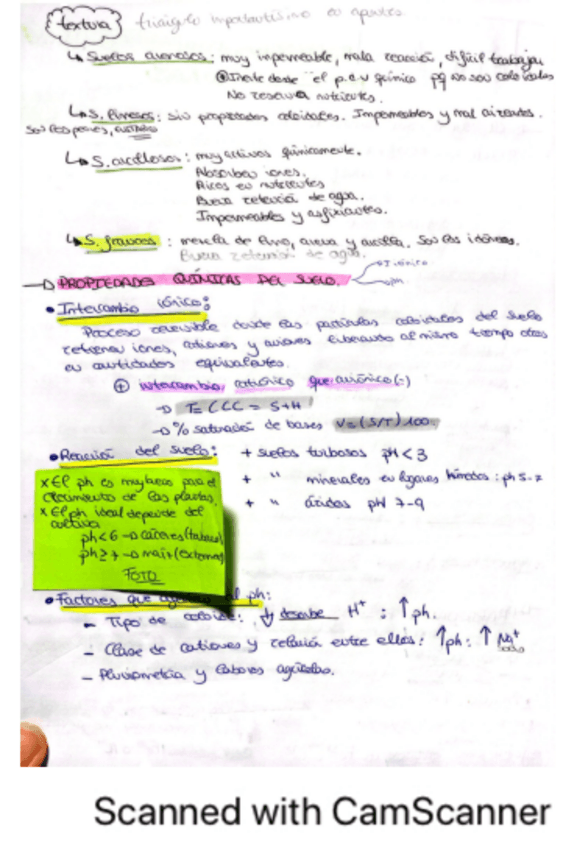 textura triángulo importantísimo en apuntes
↳ Suelos arenosos: muy impermeable, mala reacción, difícil trabajar
Inerte desde el p.d.v químico pq no son coloidales
No reserva nutrientes.
↳ S. limosos: Sin propiedades coloidales. Impermeables y mal aireados.
Son los peores,
↳ S. arcillosos: muy activos químicamente.
Absorben iones.
Ricos en nutrientes
Buena retención de agua.
Impermeables y asfixiantes.
↳ S. francos: mezcla de limo, arena y arcilla. Son los idóneos.
Buena retención de agua.
→ PROPIEDADES QUÍMICAS DEL SUELO.
• Intercambio iónico:
Proceso reversible donde las partículas coloidales del suelo
retienen iones, cationes y aniones liberando al mismo tiempo otros
en cantidades equivalentes.
⊕ intercambio catiónico que aniónico (-)
→ T = CCC = S+H
→ % saturación de bases V = (S/T) 100.
• Reacción del suelo: + suelos turbosos pH < 3
+ " minerales en lugares húmedos: ph 5-7
+ " áridos pH 7-9
x El ph es muy impo para el
crecimiento de las plantas.
x El ph ideal depende del
cultivo
ph < 6 → Cáceres (tabaco)
ph ≥ 7 → maíz (
FOTO
• Factores que ph:
- Tipo de coloide: ↓ H⁺ : ↑ ph.
- Clase de cationes y relación entre ellos: ↑ ph: ↑ Na⁺
- Pluviometría y labores agrícolas.
Scanned with CamScanner